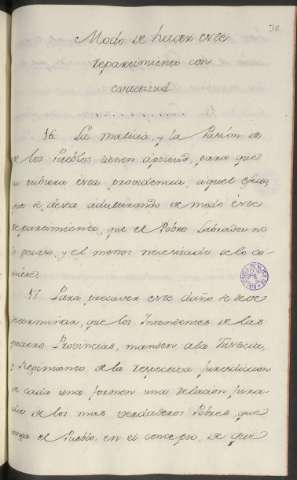 Modo de hacer este
repartimiento con
exactitud
16. La malicia, y la Pasion de
de los Pueblos tienen
no tubiera esta providencia, aquel
que se desea adulterando de modo este
repartimiento, que el Pobre Labrador no
lo goze, y el menos necesitado se lo
17. Para precaver este daño se
que los Intendentes de las
quatro Provincias, manden a la Justicia,
y Regimiento de la respectiva jurisdiccion
de cada una formen una relacion jura-
da de los mas verdaderos Pobres que
tenga el Pueblo, en el concepto, de que